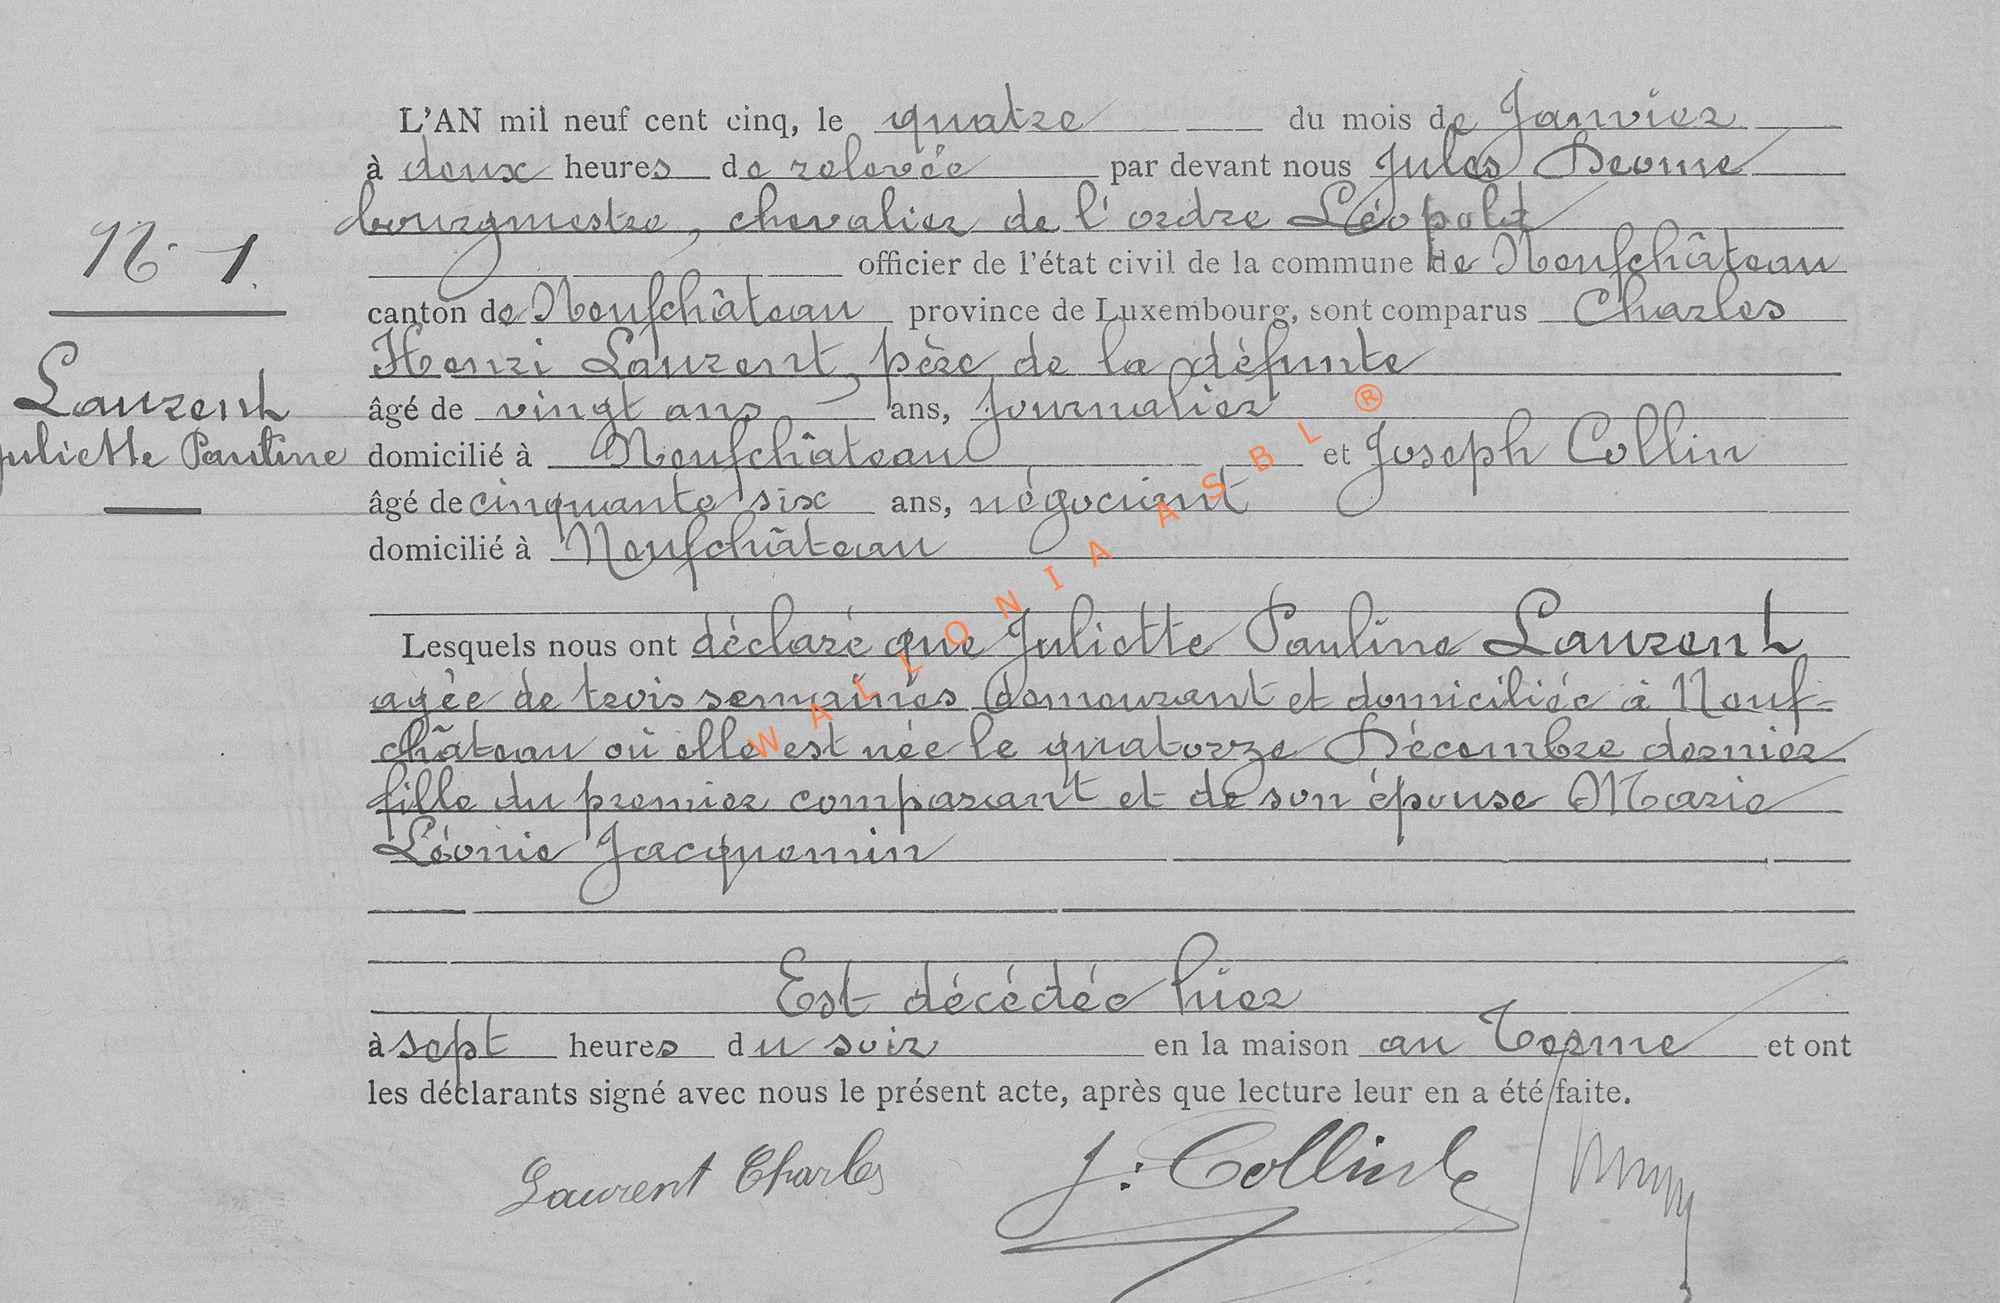 L'AN mil neuf cent cinq, le quatre du mois de Janvier
à deux heures de relevée par devant nous Jules
bourgmestre, chevalier de l'ordre Léopold
N. 1.
officier de l'état civil de la commune de Neufchâteau
canton de Neufchâteau province de Luxembourg, sont comparus Charles
Henri Laurent, père de la défunte
Laurent
âgé de vingt ans ans, journalier
Juliette Pauline
domicilié à Neufchâteau et Joseph Collin
âgé de cinquante six ans, négociant
domicilié à Neufchâteau
Lesquels nous ont déclaré que Juliette Pauline Laurent
agée de trois semaines demeurant et domiciliée à Neuf-
château où elle est née le quatorze Décembre dernier
fille du premier comparant et de son épouse Marie
Léonie Jacquemin
Est décédée hier
à sept heures du soir en la maison au Terme et ont
les déclarants signé avec nous le présent acte, après que lecture leur en a été faite.
Laurent Charles J: Collin
WALLONIA ASBL ®